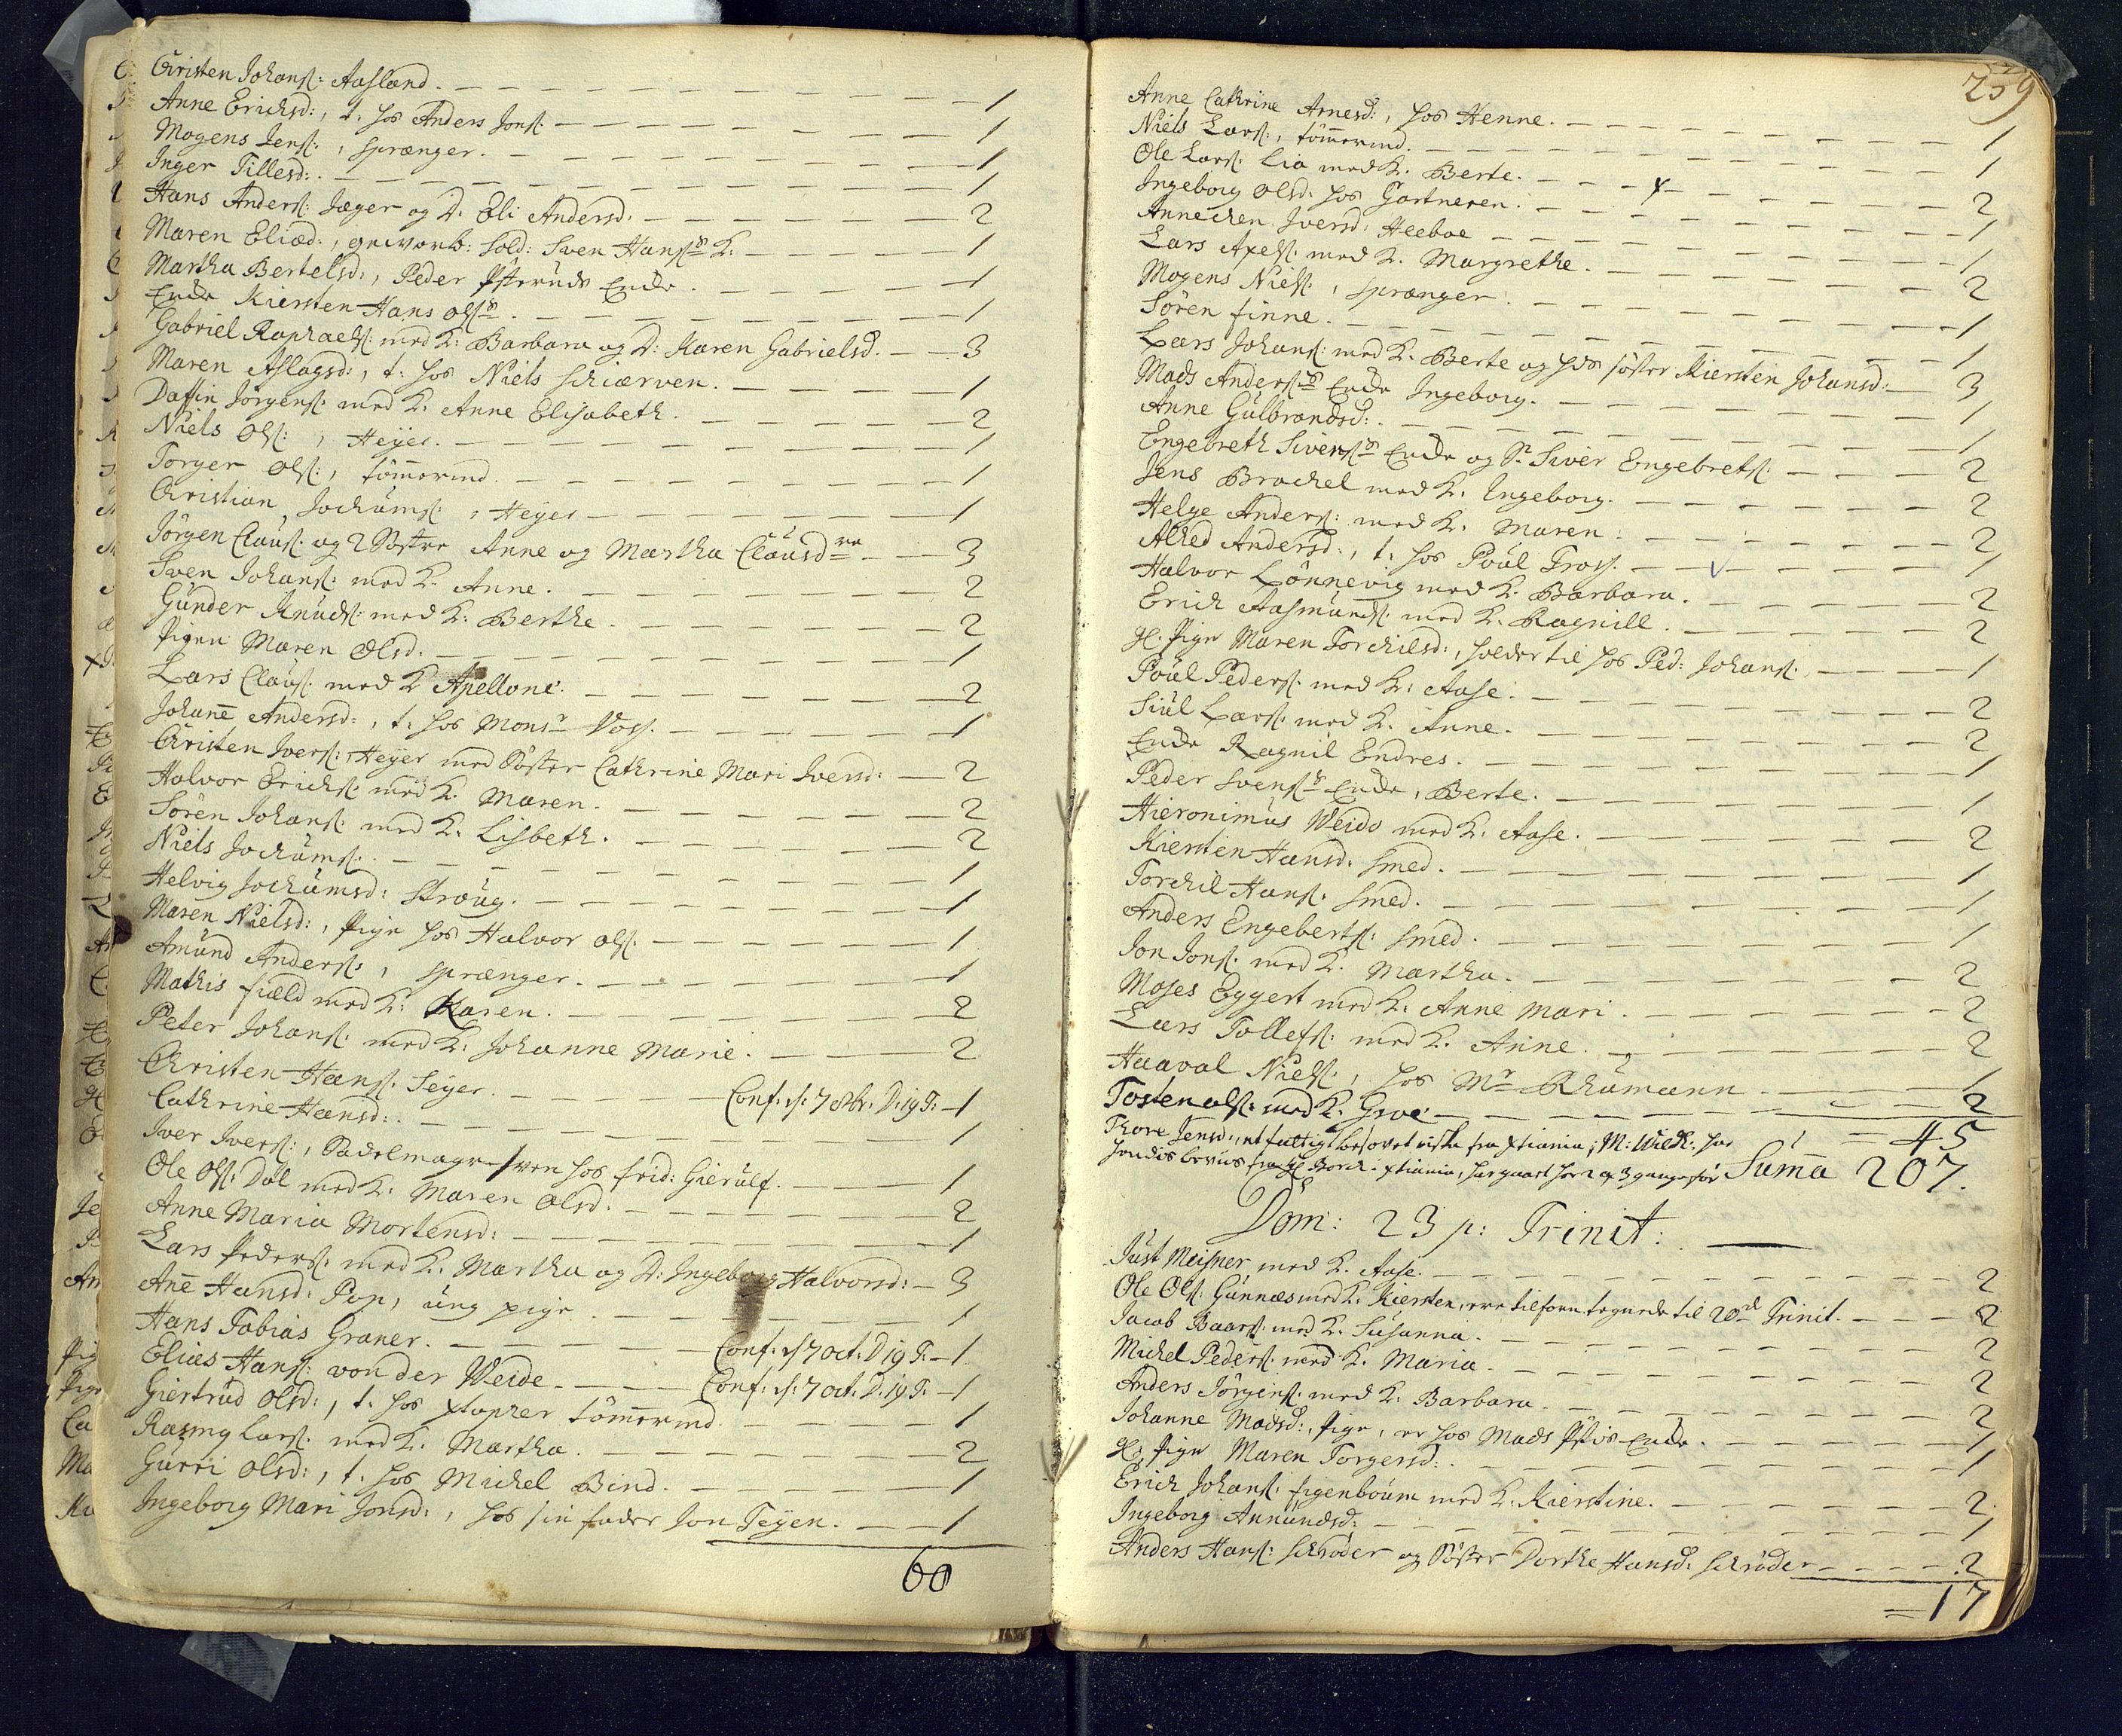 Christen Johans: Aasland. — 1
Anne Erichsd:, t. hos Anders Jons: — 1
Mogens Jens:, sprænger. — 1
Inger Tillesd:. — 1
Hans Anders: Jæger og D. Eli Andersd: — 2
Maren Eliæd:, gevorb: Sold: Sven Hans:s K. — 1
Martha Bertelsd:, Peder Ysteruds Encke. — 1
Encke Kiersten Hans Ols:s. — 1
Gabriel Raphaels: med K: Barbara og D: Karen Gabrielsd. — 3
Maren Aslagsd:, t: hos Niels Schiærven. — 1
Daffin Jörgens: med K. Anne Elisabeth. — 2
Niels Ols:, Heyer. — 1
Torger Ols:, tömmermd. — 1
Christian Jochums:, Heyer — 1
Jörgen Claus: og 2 Söstre Anne og Martha Clausdre — 3
Sven Johans: med K. Anne. — 2
Gunder Knuds: med K: Berthe. — 2
Pigen Maren Olsd. — 1
Lars Claus: med K Apellone. — 2
Johane Andersd:, t. hos Monsr Voss. — 1
Christen Ivers:, Heyer med Söster Cathrine Mari Iversd: — 2
Halvor Erichs: med K. Maren. — 2
Sören Johans: med K. Lisbeth. — 2
Niels Jochums:. — 1
Helvig Jochumsd: Straug. — 1
Maren Nielsd:, Pige hos Halvor Ols: — 1
Amund Anders:, sprænger. — 1
Mathis fiæld med K: Karen. — 2
Peter Johans: med K: Johanne Marie. — 2
Christen Hans: Seyer. — Conf. s: 7 8br. D. 19 T: — 1
Cathrine Hansd:. — 1
Iver Ivers:, Sadelmagersven hos frid: Gierulf. — 1
Ole Ols: Dal med K. Maren Olsd. — 2
Anne Maria Mortensd: — 1
Lars Peders: med K. Martha og D: Ingeborg Halvorsd: — 3
Ane Hansd: Pop, ung pige. — 1
Hans Tobias Graner. — Conf. s 7 oct. D 19 T. — 1
Elias Hans: von der Weide. — Conf: s: 7 oct. D. 19 T. — 1
Giertrud Olsd:, t. hos xtopher tömmermd. — 1
Rasmg Lars: med K. Martha. — 2
Gurri Olsd:, t. hos Michel Bind. — 1
Ingeborg Mari Jonsd:, hos sin fader Jon Teyen. — 1
60
259
Anne Cathrine Arnesd:, hos Henne. — 1
Niels Lars:, tömmermd. — 1
Ole Lars: Lia med K. Berte. — 2
Ingeborg Olsd: hos Gartneren. — 1
Annechen Iversd: Heeboe — 1
Lars Apels: med K. Margrethe. — 2
Mogens Niels:, sprænger. — 1
Sören finne. — 1
Lars Johans: med K. Berte og hds söster Kiersten Johansd: — 3
Mads Anders:s Encke Ingeborg. — 1
Anne Gulbrandsd:. — 1
Engebreth Sivers:s Encke og S. Siver Engebrets: — 2
Jens Brachel med K. Ingeborg. — 2
Helge Anders: med K. Maren. — 2
Alhed Andersd:, t. hos Poul Tross. — 1
Halvor Lönnevig med K. Barbara. — 2
Erich Aasmunds: med K. Ragnill. — 2
Gl. Pige Maren Torchilsd:, holder til hos Ped: Johans: — 1
Poul Peders: med K: Aase. — 2
Siul Lars: med K. Anne. — 2
Encke Ragnil Endres. — 1
Peder Svens:s Encke, Berte. — 1
Hieronimus Weids med K. Aase. — 2
Kiersten Hansd: Smed. — 1
Torchil Hans: Smed. — 1
Anders Engeberts: Smed. — 1
Jon Jons: med K. Martha. — 2
Moses Eggert med K. Anne Mari. — 2
Lars Tollefs: med K. Anne. — 2
Haaval Niels:, hos Mr Rhumann — 1
Tosten Ols: med K. Groe. — 2
Thore Jensd:, et fattigt besovet fra xtiania; M: Wilk: har — 45
hendes beviis fra Borch: xtiania, har gaaet her 2 a 3 gange før Suma 207.
Dom: 23 p: Trinit:
Just Meisner med K. Aase. — 2
Ole Ols: Gunnæs med K. Kiersten, ere tilforn tegnede til 20de Trinit. — 2
Jacob Baars: med K. Susanna. — 2
Michel Peders: med K. Maria. — 2
Anders Jörgens: med K. Barbara. — 2
Johanne Madsd:, Pige, er hos Mads Encke. — 1
Gl. Pige Maren Torgersd:. — 1
Erich Johans: figenboum med K. Kierstine. — 2
Ingeborg Anundsd: — 1
Anders Hans: Schröder og Söster Dorthe Hansd: Schröder — 2
17